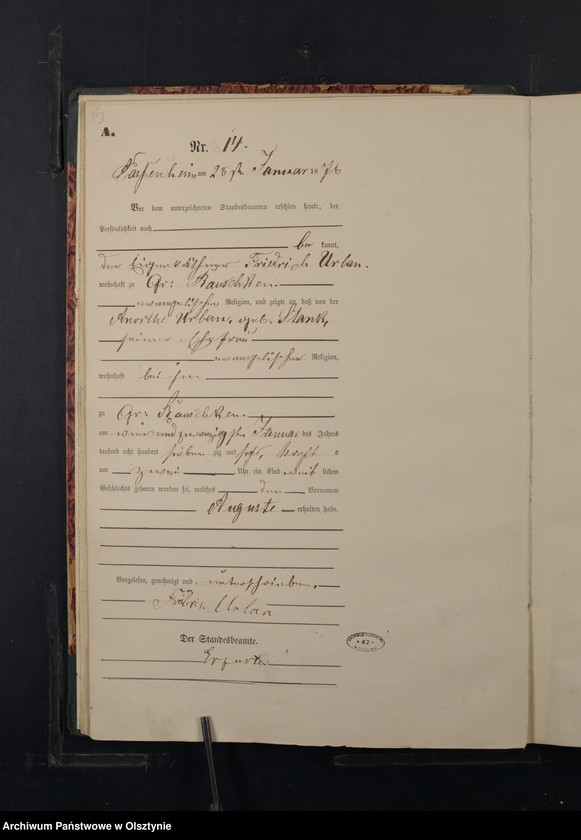 A.
Nr. 14.
Passenheim, am 28 ten Januar 1876
Vor dem unterzeichneten Standesbeamten erschien heute, der
Persönlichkeit nach
be kannt,
der Eigenkäthner Friedrich Urban.
wohnhaft zu Gr: Rauschken.
evangelischer Religion, und zeigte an, daß von der
Urban, geb.
seiner Ehefrau
evangelischer Religion,
wohnhaft bei ihm
zu Gr: Rauschken.
am ten Januar des Jahres
tausend acht hundert sieben zig und sechs, Nachts
um zwei Uhr ein Kind weib lichen
Geschlechts geboren worden sei, welches den Vornamen
Auguste erhalten habe.
Vorgelesen, genehmigt und unterschrieben.
Urban
Der Standesbeamte.
42
Archiwum Państwowe w Olsztynie